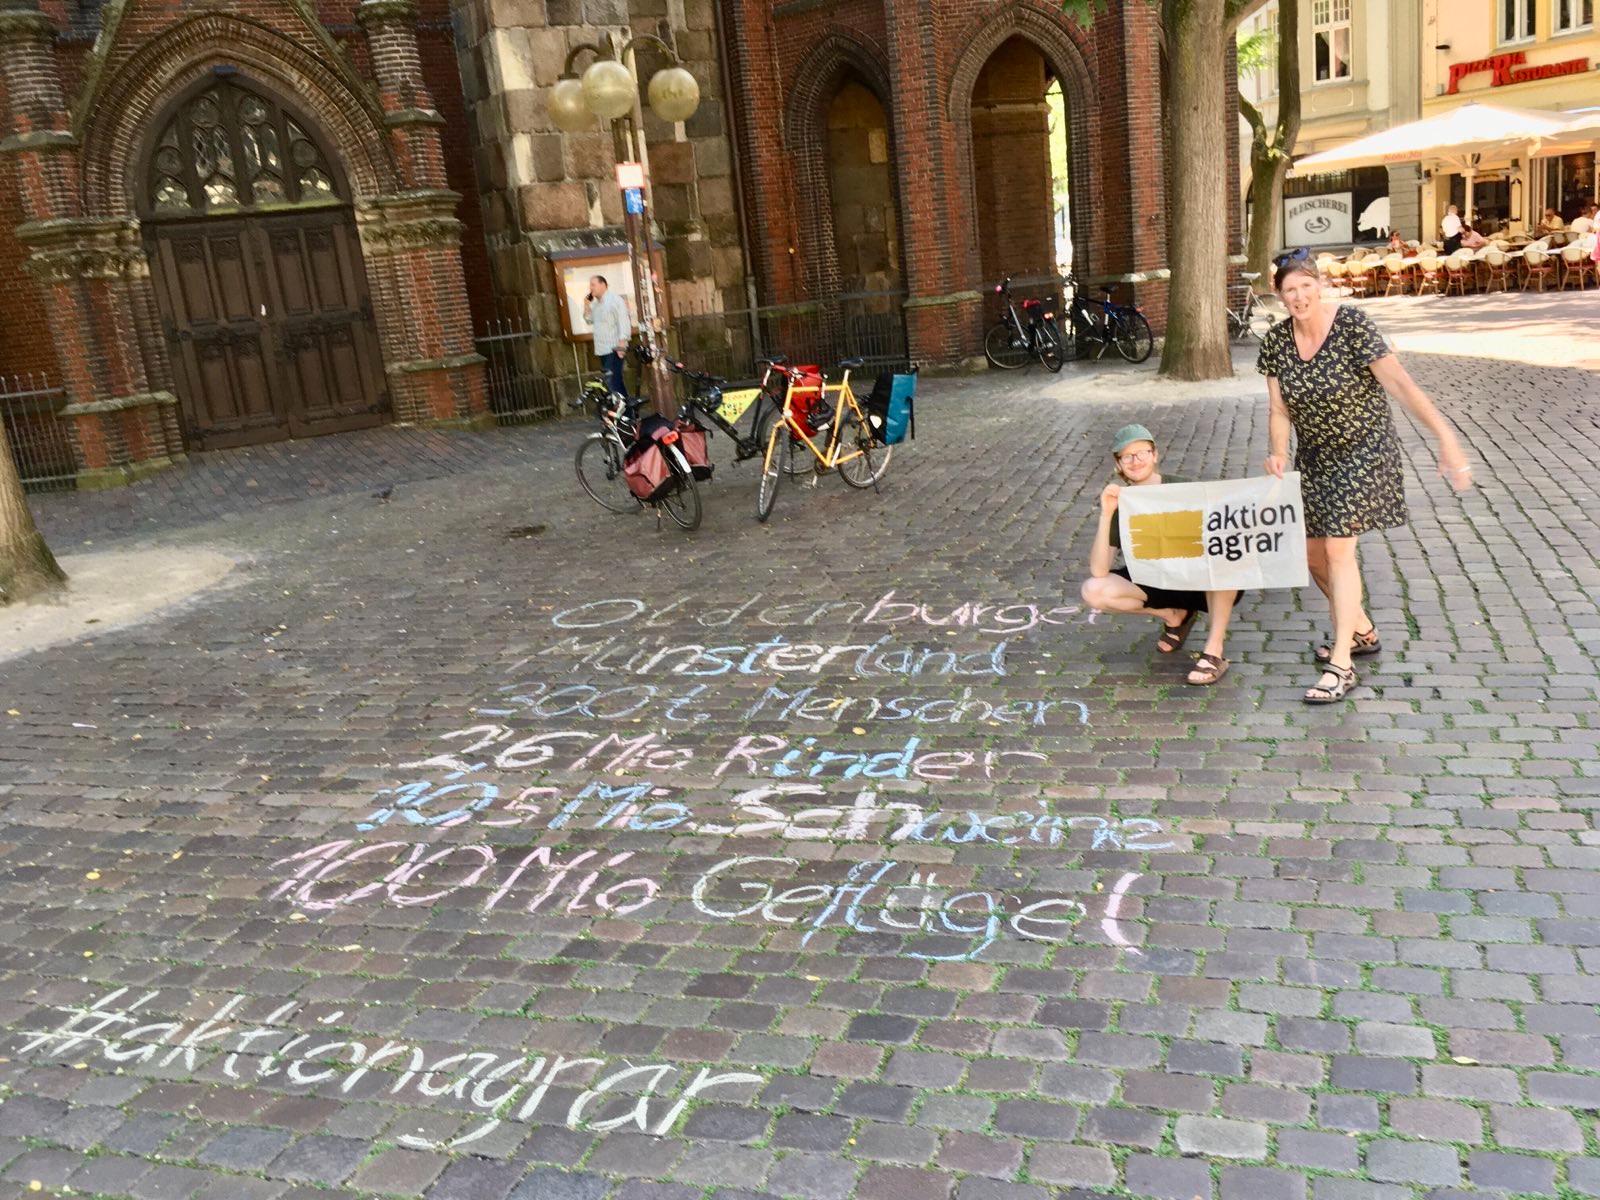 PIZZERIA RISTORANTE
FLEISCHEREI
aktion
agrar
Oldenburger
Münsterland
300 t. Menschen
2,6 Mio Rinder
10,5 Mio Schweine
100 Mio Geflügel
#aktionagrar